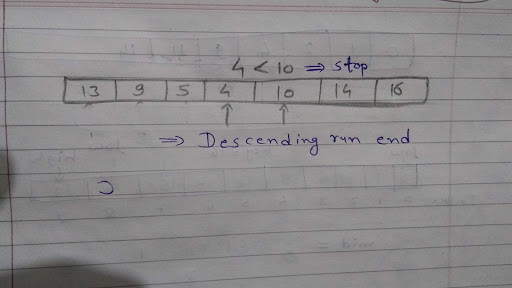 4 < 10 ⇒ stop
13 9 5 4 10 14 16
↑ ↑
⇒ Descending run end